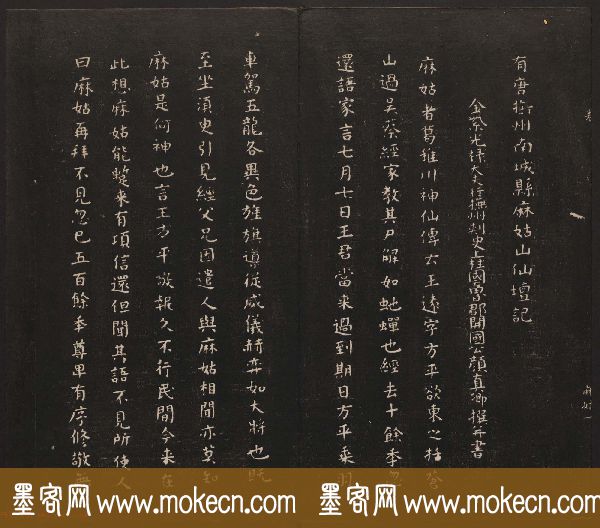 有唐撫州南城縣麻姑山仙壇記
金紫光祿大夫行撫州刺史上柱國魯郡開國公顏真卿撰并書
麻姑者葛稚川神仙傳云王遠字方平欲東之括蒼
山過吳蔡經家教其尸解如虵蟬也經去十餘年忽
還語家言七月七日王君當來過到期日方平乘羽
車駕五龍各異色旌旗導從威儀赫弈如大將也既
至坐須臾引見經父兄因遣人與麻姑相聞亦莫知
麻姑是何神也言王方平敬報久不行民間今來在
此想麻姑能暫來有頃信還但聞其語不見所使人
曰麻姑再拜不見忽已五百餘年尊卑有序修敬無
墨客网 www.mokecn.com 墨客网 www.mokecn.com